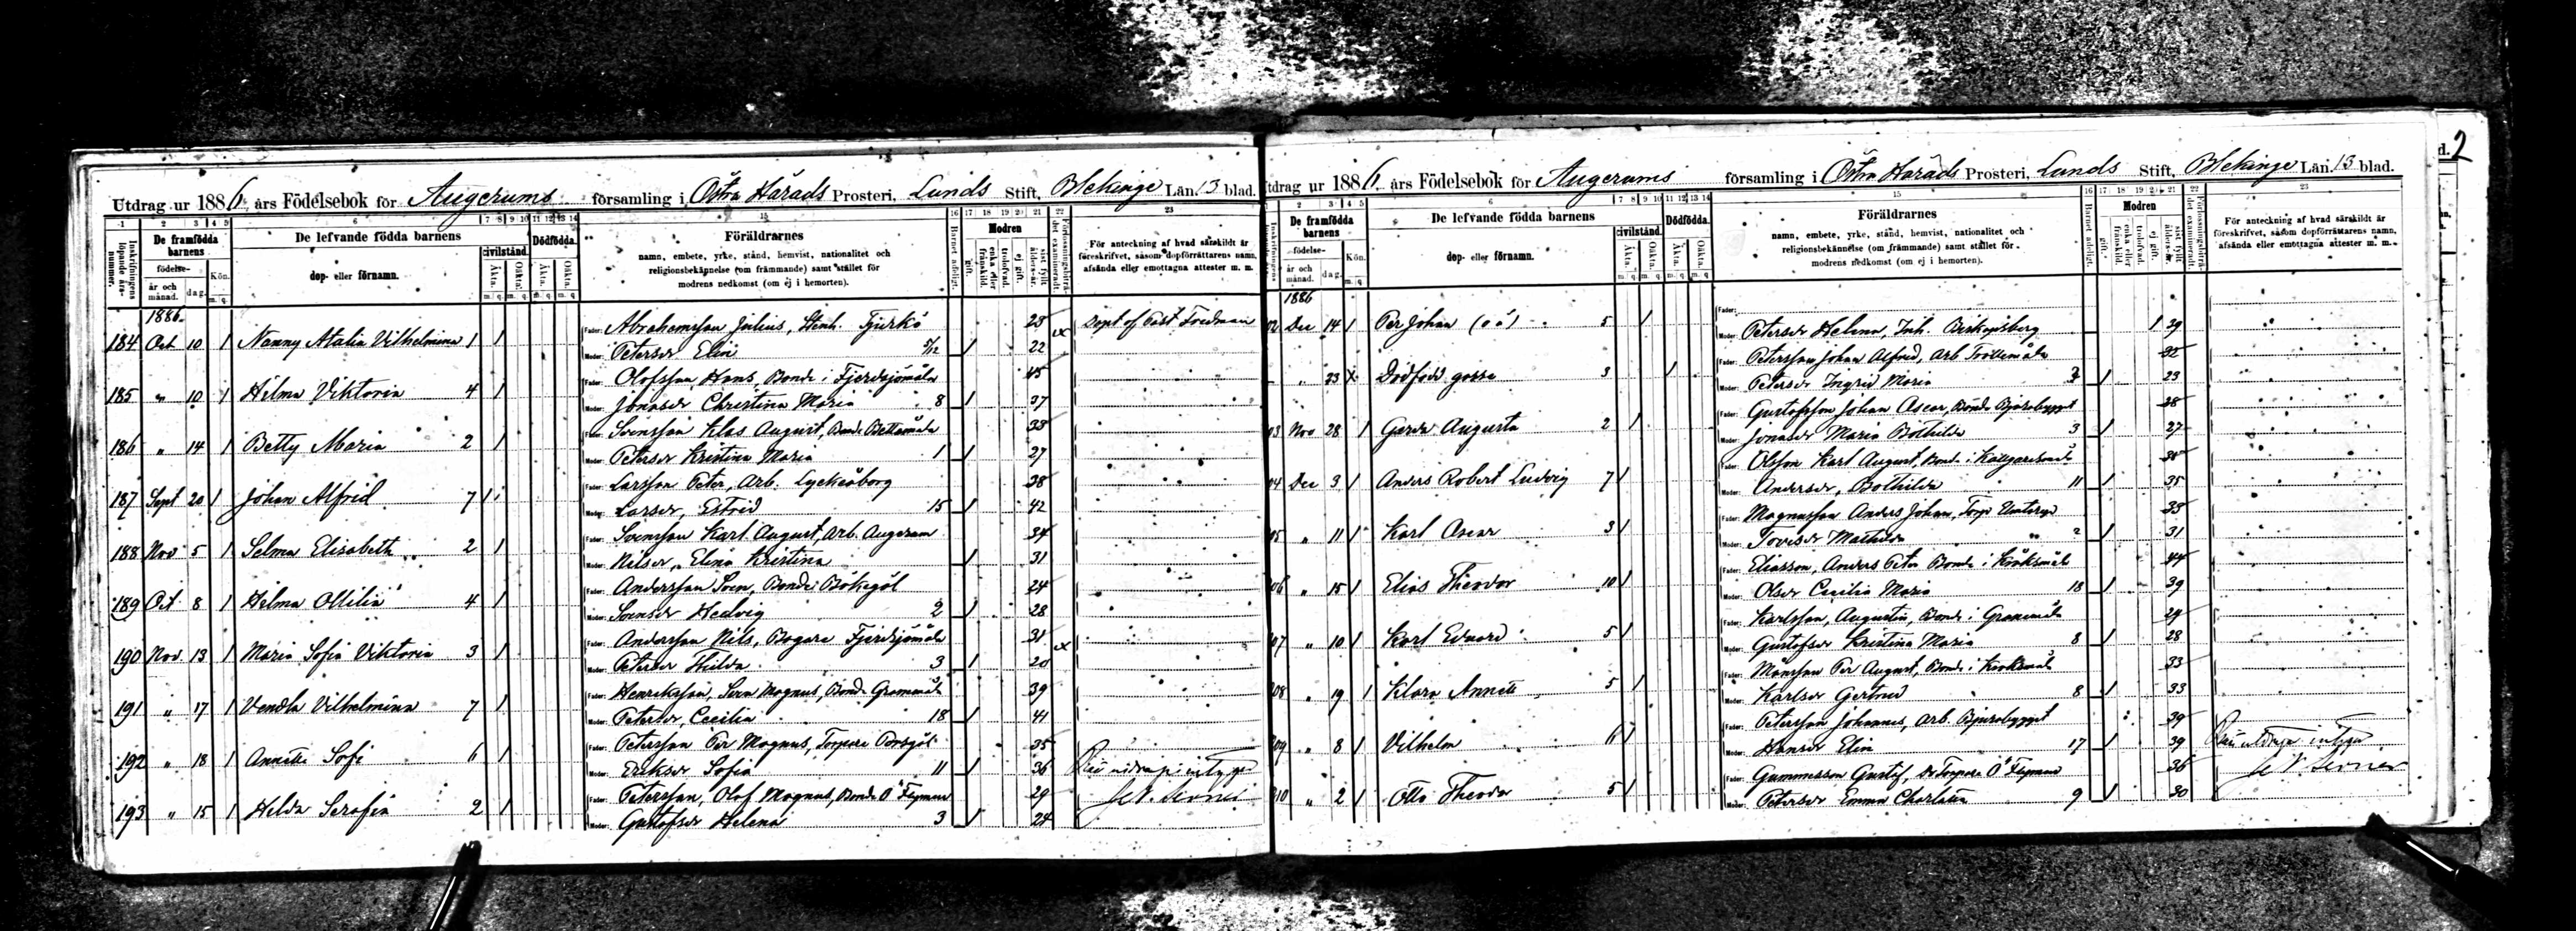 Utdrag ur 1886 års Födelsebok för Augerums församling i Östra Härads Prosteri, Lunds Stift, Blekinge Län. 13 blad.
Inskrifningens löpande års-nummer.
De framfödda barnens
födelse-
år och månad.
dag.
Kön.
m. q.
De lefvande födda barnens
dop- eller förnamn.
civilstånd.
Äkta. Oäkta.
Dödfödda.
Äkta. Oäkta.
Föräldrarnes
namn, embete, yrke, stånd, hemvist, nationalitet och
religionsbekännelse (om främmande) samt stället för
modrens nedkomst (om ej i hemorten).
Barnet adeligt.
Modren
gift.
enka eller frånskild.
trolofvad.
ej gift.
sist fyllt ålders-år.
För anteckning af hvad särskildt är
föreskrifvet, såsom dopförrättarens namn,
afsända eller emottagna attester m. m.
1886
Fader: Abrahamsson Julius, Stenh. Tjurkö 23 Döpt af Past Fredman
184 Oct 10 1 Nanny Atalia Vilhelmina 1 1
Moder: Petersdr Elin 5/12 1 22
Fader: Olofsson Hans, Bonde i Fjerdsjömåla 45
185 " 10 1 Hilma Viktoria 4 1
Moder: Jonasdr Christina Maria 8 1 37
Fader: Svensson Klas August, Bonde Bettamåla 33
186 " 14 1 Betty Maria 2 1
Moder: Petersdr Kristina Maria 1 1 27
Fader: Larsson Peter, Arb. Lyckåborg 38
187 Sept 20 1 Johan Alfrid 7 1
Moder: Larsdr, Estrid 15 1 42
Fader: Svensson Karl August, Arb. Augerum 34
188 Nov 5 1 Selma Elisabeth 2 1
Moder: Nilsdr, Elina Kristina 1 31
Fader: Andersson Sven, Bonde Bökegöl 24
189 Oct 8 1 Hilma Ottilia 4 1
Moder: Svensdr Hedvig 2 1 28
Fader: Andersson Nils, Bagare Fjerdsjömåla 31
190 Nov 13 1 Maria Sofia Viktoria 3 1
Moder: Petersdr Thilda 3 1 20
Fader: Henriksson, Sven Magnus, Bonde Grammåla 39
191 " 17 1 Vendla Vilhelmina 7 1
Moder: Petersdr, Cecilia 18 1 41
Fader: Petersson Per Magnus, Torpare 35
192 " 18 1 Annette Sofi 6 1
Moder: Eriksdr Sofia 11 1 36
Fader: Petersson, Olof Magnus, Bonde Ö 29
193 " 15 1 Hilda Serafia 2 1
Moder: Gustafsdr Helena 3 1 24
Utdrag ur 1886 års Födelsebok för Augerums församling i Östra Härads Prosteri, Lunds Stift, Blekinge Län. 13 blad.
De framfödda barnens
födelse-
år och månad.
dag.
Kön.
De lefvande födda barnens
dop- eller förnamn.
civilstånd.
Äkta. Oäkta.
Dödfödda.
Äkta. Oäkta.
Föräldrarnes
namn, embete, yrke, stånd, hemvist, nationalitet och
religionsbekännelse (om främmande) samt stället för
modrens nedkomst (om ej i hemorten).
Barnet adeligt.
Modren
gift.
enka eller frånskild.
trolofvad.
ej gift.
sist fyllt ålders-år.
För anteckning af hvad särskildt är
föreskrifvet, såsom dopförrättarens namn,
afsända eller emottagna attester m. m.
1886
Fader:
02 Dec 14 1 Per Johan (oä) 5 1
Moder: Petersdr Helena, Inh. Biskopsberg 1 39
Fader: Petersson Johan Alfred, Arb Trollemåla 32
" 23 Dödfödd gosse 3 1
Moder: Petersdr Ingrid Maria 1 23
Fader: Gustafsson Johan Oscar, Bonde Bjurabygget 28
03 Nov 28 1 Gerda Augusta 2 1
Moder: Jonasdr Maria Bothilda 3 1 27
Fader: Olsson Karl August, Bonde i
04 Dec 3 1 Anders Robert Ludvig 7 1
Moder: Andersdr, Bothilda 11 1 35
Fader: Magnusson Anders Johan, Torp 35
05 " 11 1 Karl Oscar 3 1
Moder: Mathilda 2 1 31
Fader: Eliasson, Anders Peter Bonde i 44
06 " 15 1 Elias Theodor 10 1
Moder: Olsdr Cecilia Maria 18 1 39
Fader: Karlsson, Augustin, Bonde i Grammåla 29
07 " 10 1 Karl Edvard 5 1
Moder: Gustafsdr Kristina Maria 8 1 28
Fader: Månsson Per August, Bonde i 33
08 " 19 1 Klara Annette 5 1
Moder: Karlsdr Gertrud 8 1 33
Fader: Petersson Johannes, Arb. Bjurabygget 39
09 " 8 1 Vilhelm 1
Moder: Hansdr Elin 17 1 39
Fader: Gummesson Gustaf, Torpare Ö 36
10 " 2 1 Otto Theodor 5 1
Moder: Petersdr Emma Charlotta 9 1 30
2